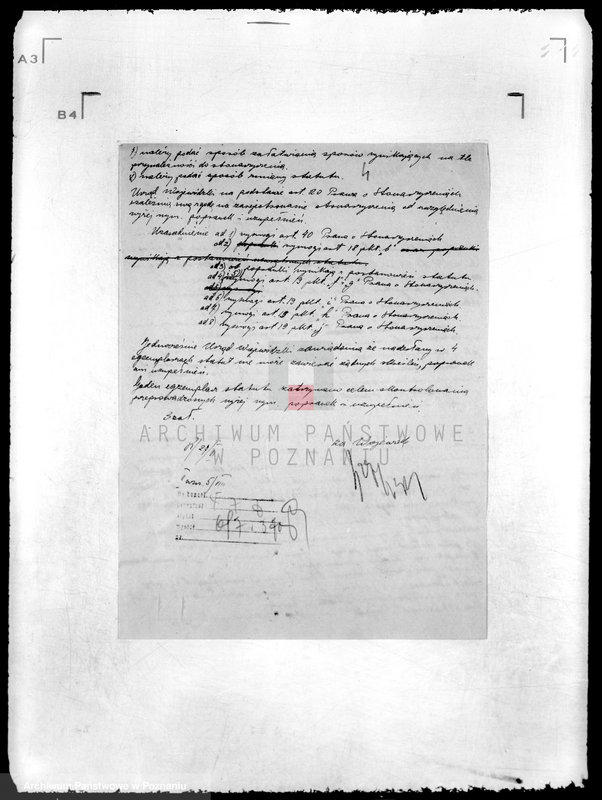 A3
B4
7) należy podać sposób załatwiania sporów wynikających na tle
przynależności do stowarzyszenia.
8) należy podać sposób zmiany statutu.
Urząd Wojewódzki na podstawie art. 20 Prawa o Stowarzyszeniach
uzależnia swą zgodę na zarejestrowanie stowarzyszenia od uwzględnienia
wyżej wym. poprawek i uzupełnień.
Uzasadnienie ad 1) wymogi art. 40 Prawa o Stowarzyszeniach
ad 2) wymogi art 18 pkt.
ad 3) poprawki wynikają z postanowień statutu
ad 4) wymogi art. 19 pkt. "g" Prawa o Stowarzyszeniach.
ad 6) wymogi art. 19 pkt. "i" Prawa o Stowarzyszeniach
ad 7) wymogi art. 19 pkt. "k" Prawa o Stowarzyszeniach
ad 8) wymogi art 19 pkt. "j" Prawa o Stowarzyszeniach.
Jednocześnie Urząd Wojewódzki zawiadamia że nadesłany w 4
egzemplarzach statut nie może zawierać żadnych skreśleń, poprawek
ani uzupełnień.
Jeden egzemplarz statutu zatrzymano celem skontrolowania
przeprowadzonych wyżej wym. poprawek i uzupełnień.
3 zał.
za Wojewodę
ARCHIWUM PAŃSTWOWE
W POZNANIU
Archiwum Państwowe w Poznaniu